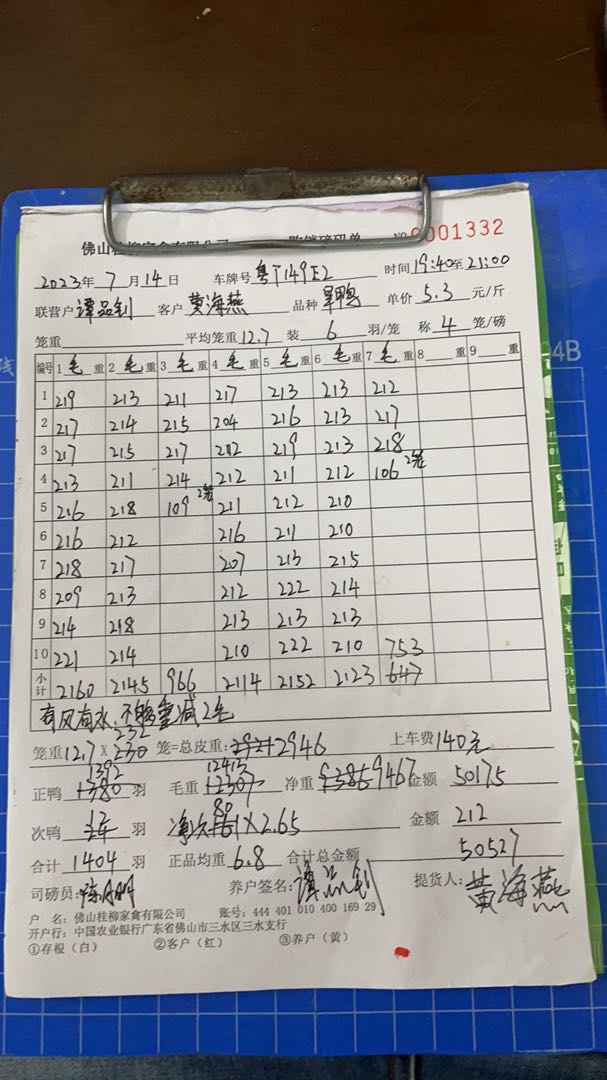 佛山桂柳家禽有限公司 购销磅码单 NO 0001332
2023年 7 月 14 日 车牌号 粤T149E2 时间 19:40至21:00
联营户 谭品钊 客户 黄海燕 品种 单价 5.3 元/斤
笼重 平均笼重 12.7 装 6 羽/笼 称 4 笼/磅
编号 1 毛 重 2 毛 重 3 毛 重 4 毛 重 5 毛 重 6 毛 重 7 毛 重 8 重 9 重
1 219 213 211 217 213 213 212
2 217 214 215 204 216 213 217
3 217 215 217 212 219 213 218
4 213 211 214 212 211 212 106 2笼
5 216 218 109 2笼 211 212 210
6 216 212 216 211 210
7 218 217 207 213 215
8 209 213 212 222 214
9 214 218 213 213 213
10 221 214 210 222 210 753
小计 2160 2145 966 2114 2152 2123 647
有风有水,不够重减2毛
232
笼重 12.7 X 230 笼=总皮重: 2921 2946 上车费 140元
1392 12413
正鸭 1380 羽 毛重 12307 净重 9386 9467 金额 50175
12 80
次鸭 24 羽 净次 161 X 2.65 金额 212
合计 1404 羽 正品均重 6.8 合计总金额 50527
司磅员: 养户签名: 谭品钊 提货人: 黄海燕
户 名: 佛山桂柳家禽有限公司 账号: 444 401 010 400 169 29
开户行: 中国农业银行广东省佛山市三水区三水支行
①存根(白) ②客户(红) ③养户(黄)
4B